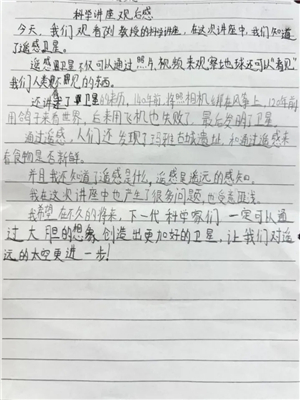 科学讲座观后感
今天，我们观看了孙教授的科学讲座，在这次讲座中，我们知道
了遥感卫星。
遥感卫星不仅可以通过照片、视频来观察地球还可以"看见"
我们人类看不见的东西。
还讲了卫星的来历，160年前，将照相机绑在风筝上，120年前
用鸽子来看世界，后来用飞机也失败了，最后发明了卫星。
通过遥感，人们还发现了玛雅古城遗址，和通过遥感来
看食物是否新鲜。
并且我还知道了遥感是什么，遥感是遥远的感知。
我在这次讲座中也产生了很多问题，也受益匪浅。
我希望在不久的将来，下一代科学家们一定可以通
过大胆的想象创造出更加好的卫星，让我们对遥
远的太空更进一步！